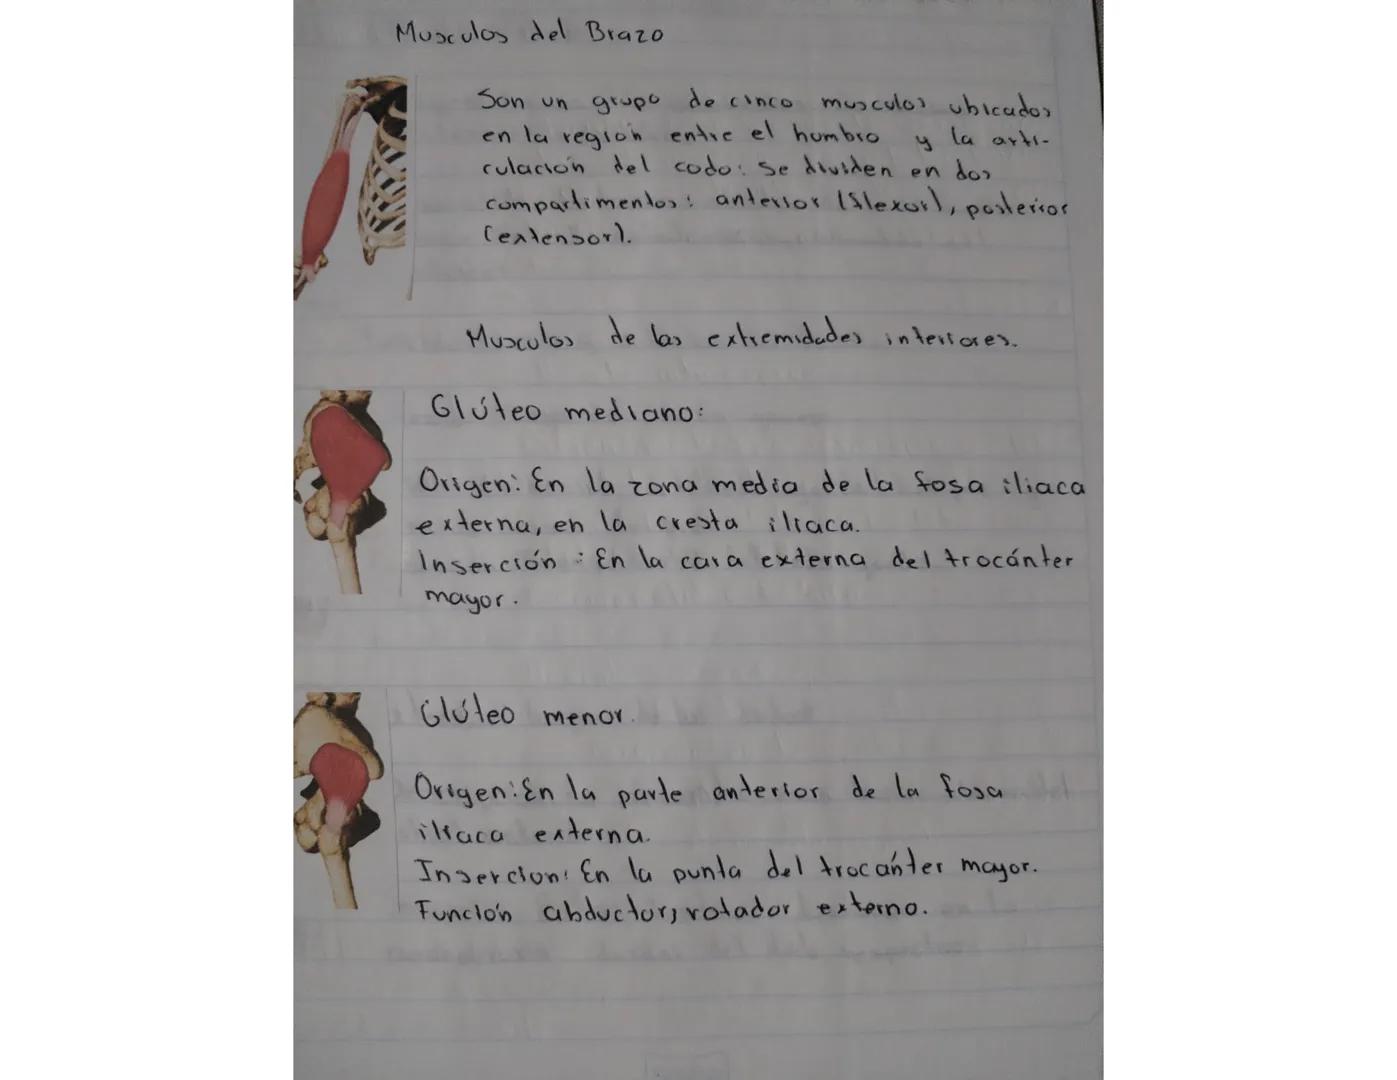 Musculos del Brazo
Son un grupo de cinco musculos ubicados
en la región entre el hombro y la arti-
culación del codo: se dividen en dos
compartimentos: anterior (flexor), posterior
(extensor).
Musculos de las extremidades inferiores.
Glúteo mediano:
Origen: En la zona media de la fosa iliaca
externa, en la cresta iliaca.
Inserción: En la cara externa del trocánter
mayor.
Glúteo menor.
Origen: En la parte anterior de la fosa
iliaca externa.
Insercion: En la punta del trocánter mayor.
Función abductor, rotador externo.